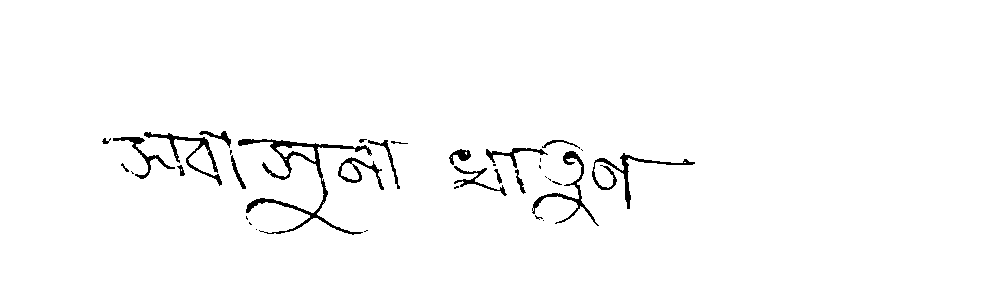 সাবাসুনা খাতুন